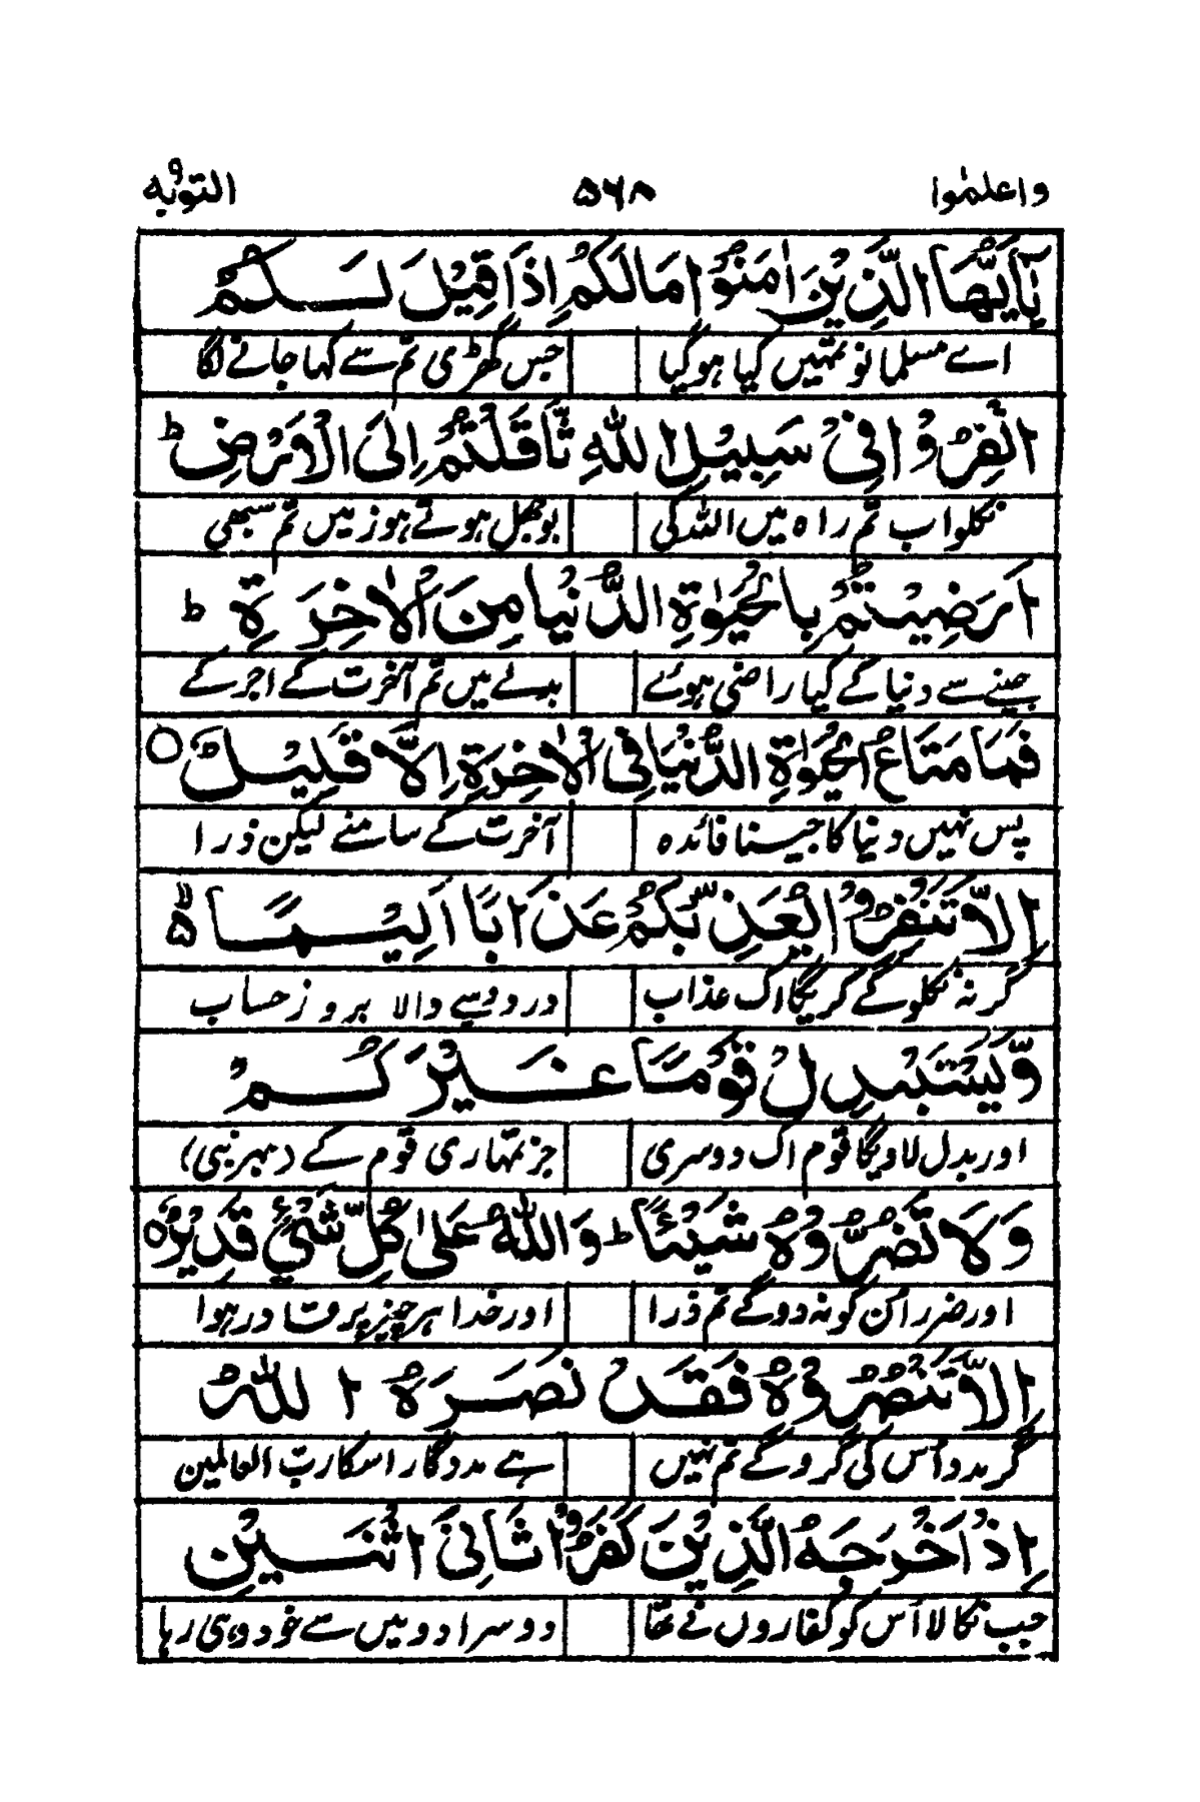 واعلموا ۵۶۸ التوبه ۹
يٰۤاَيُّهَا الَّذِيْنَ اٰمَنُوْا مَا لَكُمْ اِذَا قِيْلَ لَـكُمُ
اے مسلمانو تمہیں کیا ہوگیا جس گھڑی تم سے کہا جانے لگا
انْفِرُوْا فِىْ سَبِيْلِ اللّٰهِ اثَّاقَلْتُمْ اِلَى الْاَرْضِ ؕ
نکلو اب تم راہ میں اللہ کی بوجھل ہوتے ہو زمیں تم سبھی
اَرَضِيْتُمْ بِالْحَيٰوةِ الدُّنْيَا مِنَ الْاٰخِرَةِ ؕ
جینے سے دنیا کے کیا راضی ہوئے بدلے میں تم آخرت کے اجر کے
فَمَا مَتَاعُ الْحَيٰوةِ الدُّنْيَا فِى الْاٰخِرَةِ اِلَّا قَلِيْلٌ ○
پس نہیں دنیا کا جیسنا فائدہ آخرت کے سامنے لیکن ذرا
اِلَّا تَنْفِرُوْا يُعَذِّبْكُمْ عَذَابًا اَلِيْمًا ۵
گر نہ نکلو گے کریگا اک عذاب درد والا بروز حساب
وَّيَسْتَبْدِلْ قَوْمًا غَيْرَكُمْ
اور بدل لاویگا قوم اک دوسری جز تمہاری قوم کے (بہر نبی)
وَلَا تَضُرُّوْهُ شَيْئًا ؕ وَاللّٰهُ عَلٰى كُلِّ شَىْءٍ قَدِيْرٌ ○
اور ضرر اُن کو نہ دو گے تم ذرا اور خدا ہر چیز پر قادر ہوا
اِلَّا تَنْصُرُوْهُ فَقَدْ نَصَرَهُ اللّٰهُ
گر مدد اُس کی کرو گے تم نہیں ہے مددگار اسکا ربّ العالمین
اِذْ اَخْرَجَهُ الَّذِيْنَ كَفَرُوْا ثَانِىَ اثْنَيْنِ
جب نکالا اُس کو کفاروں نے تھا دوسرا دو میں سے خود وہی رہا